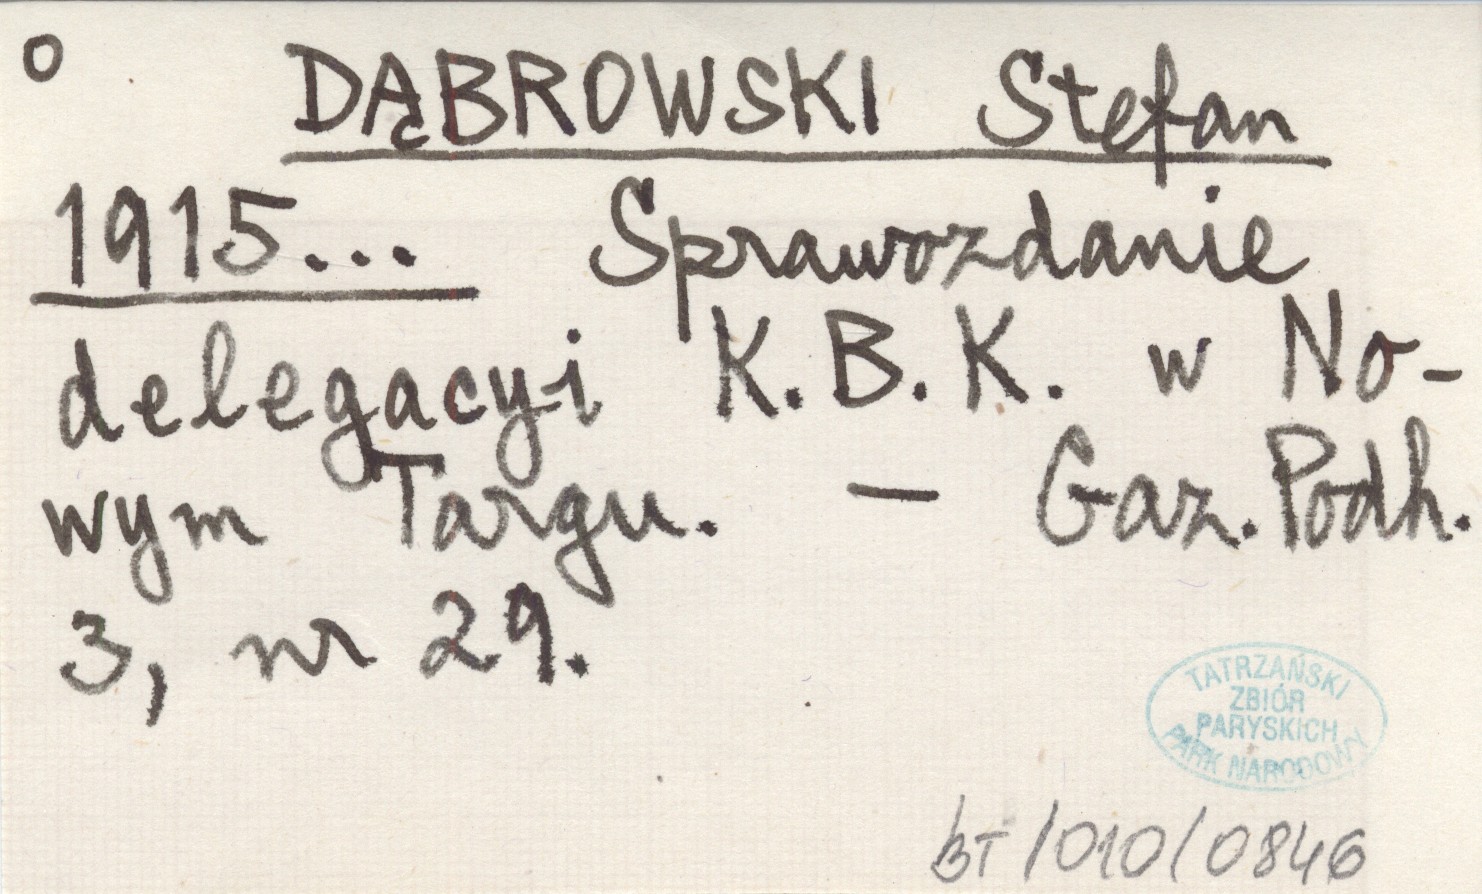 o DĄBROWSKI Stefan
1915... Sprawozdanie
delegacyi K.B.K. w No-
wym Targu. — Gaz. Podh.
3, nr 29.
TATRZAŃSKI
ZBIÓR
PARYSKICH
PARK NARODOWY
BT/010/0846